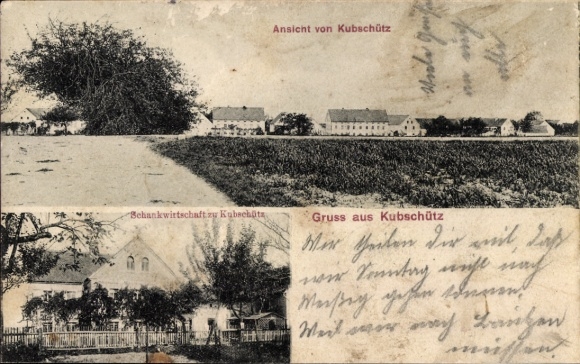 Ansicht von Kubschütz
Viele Grüße
an euch
alle
Schankwirtschaft zu Kubschütz
Gruss aus Kubschütz
Wir theilen Dir mit, daß
wir Sonntag nicht nach
Weißig gehen können.
Weil wir nach Bautzen
müssen.